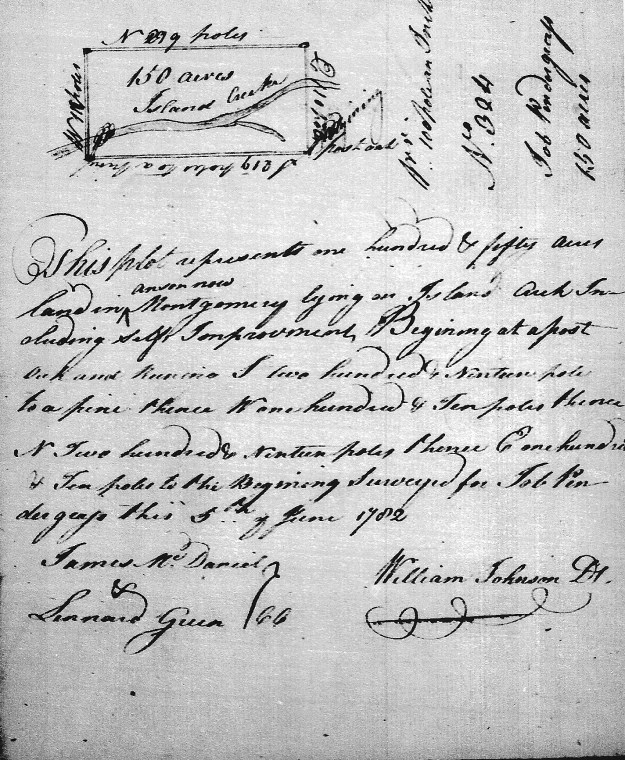 N 219 poles
150 acres
Island Creek
W 110 poles
E 110 poles
Begining
post oak
S 219 poles to a pine
No. 324
Job Pendergrass
150 acres
This plot represents one hundred & fifty acres
land in ^ anson now Montgomery lying on Island Creek In-
cluding Self Improvment, Begining at a post
Oak and Runing S two hundred & Ninteen pole
to a pine thence W one hundred & Ten poles thence
N Two hundred & Ninteen poles thence E one hundred
& Ten poles to the Begining Surveyed for Job Pen-
dergrass this 5th of June 1782
James McDaniel
&
Lennard Green
CC
William Johnson DS.